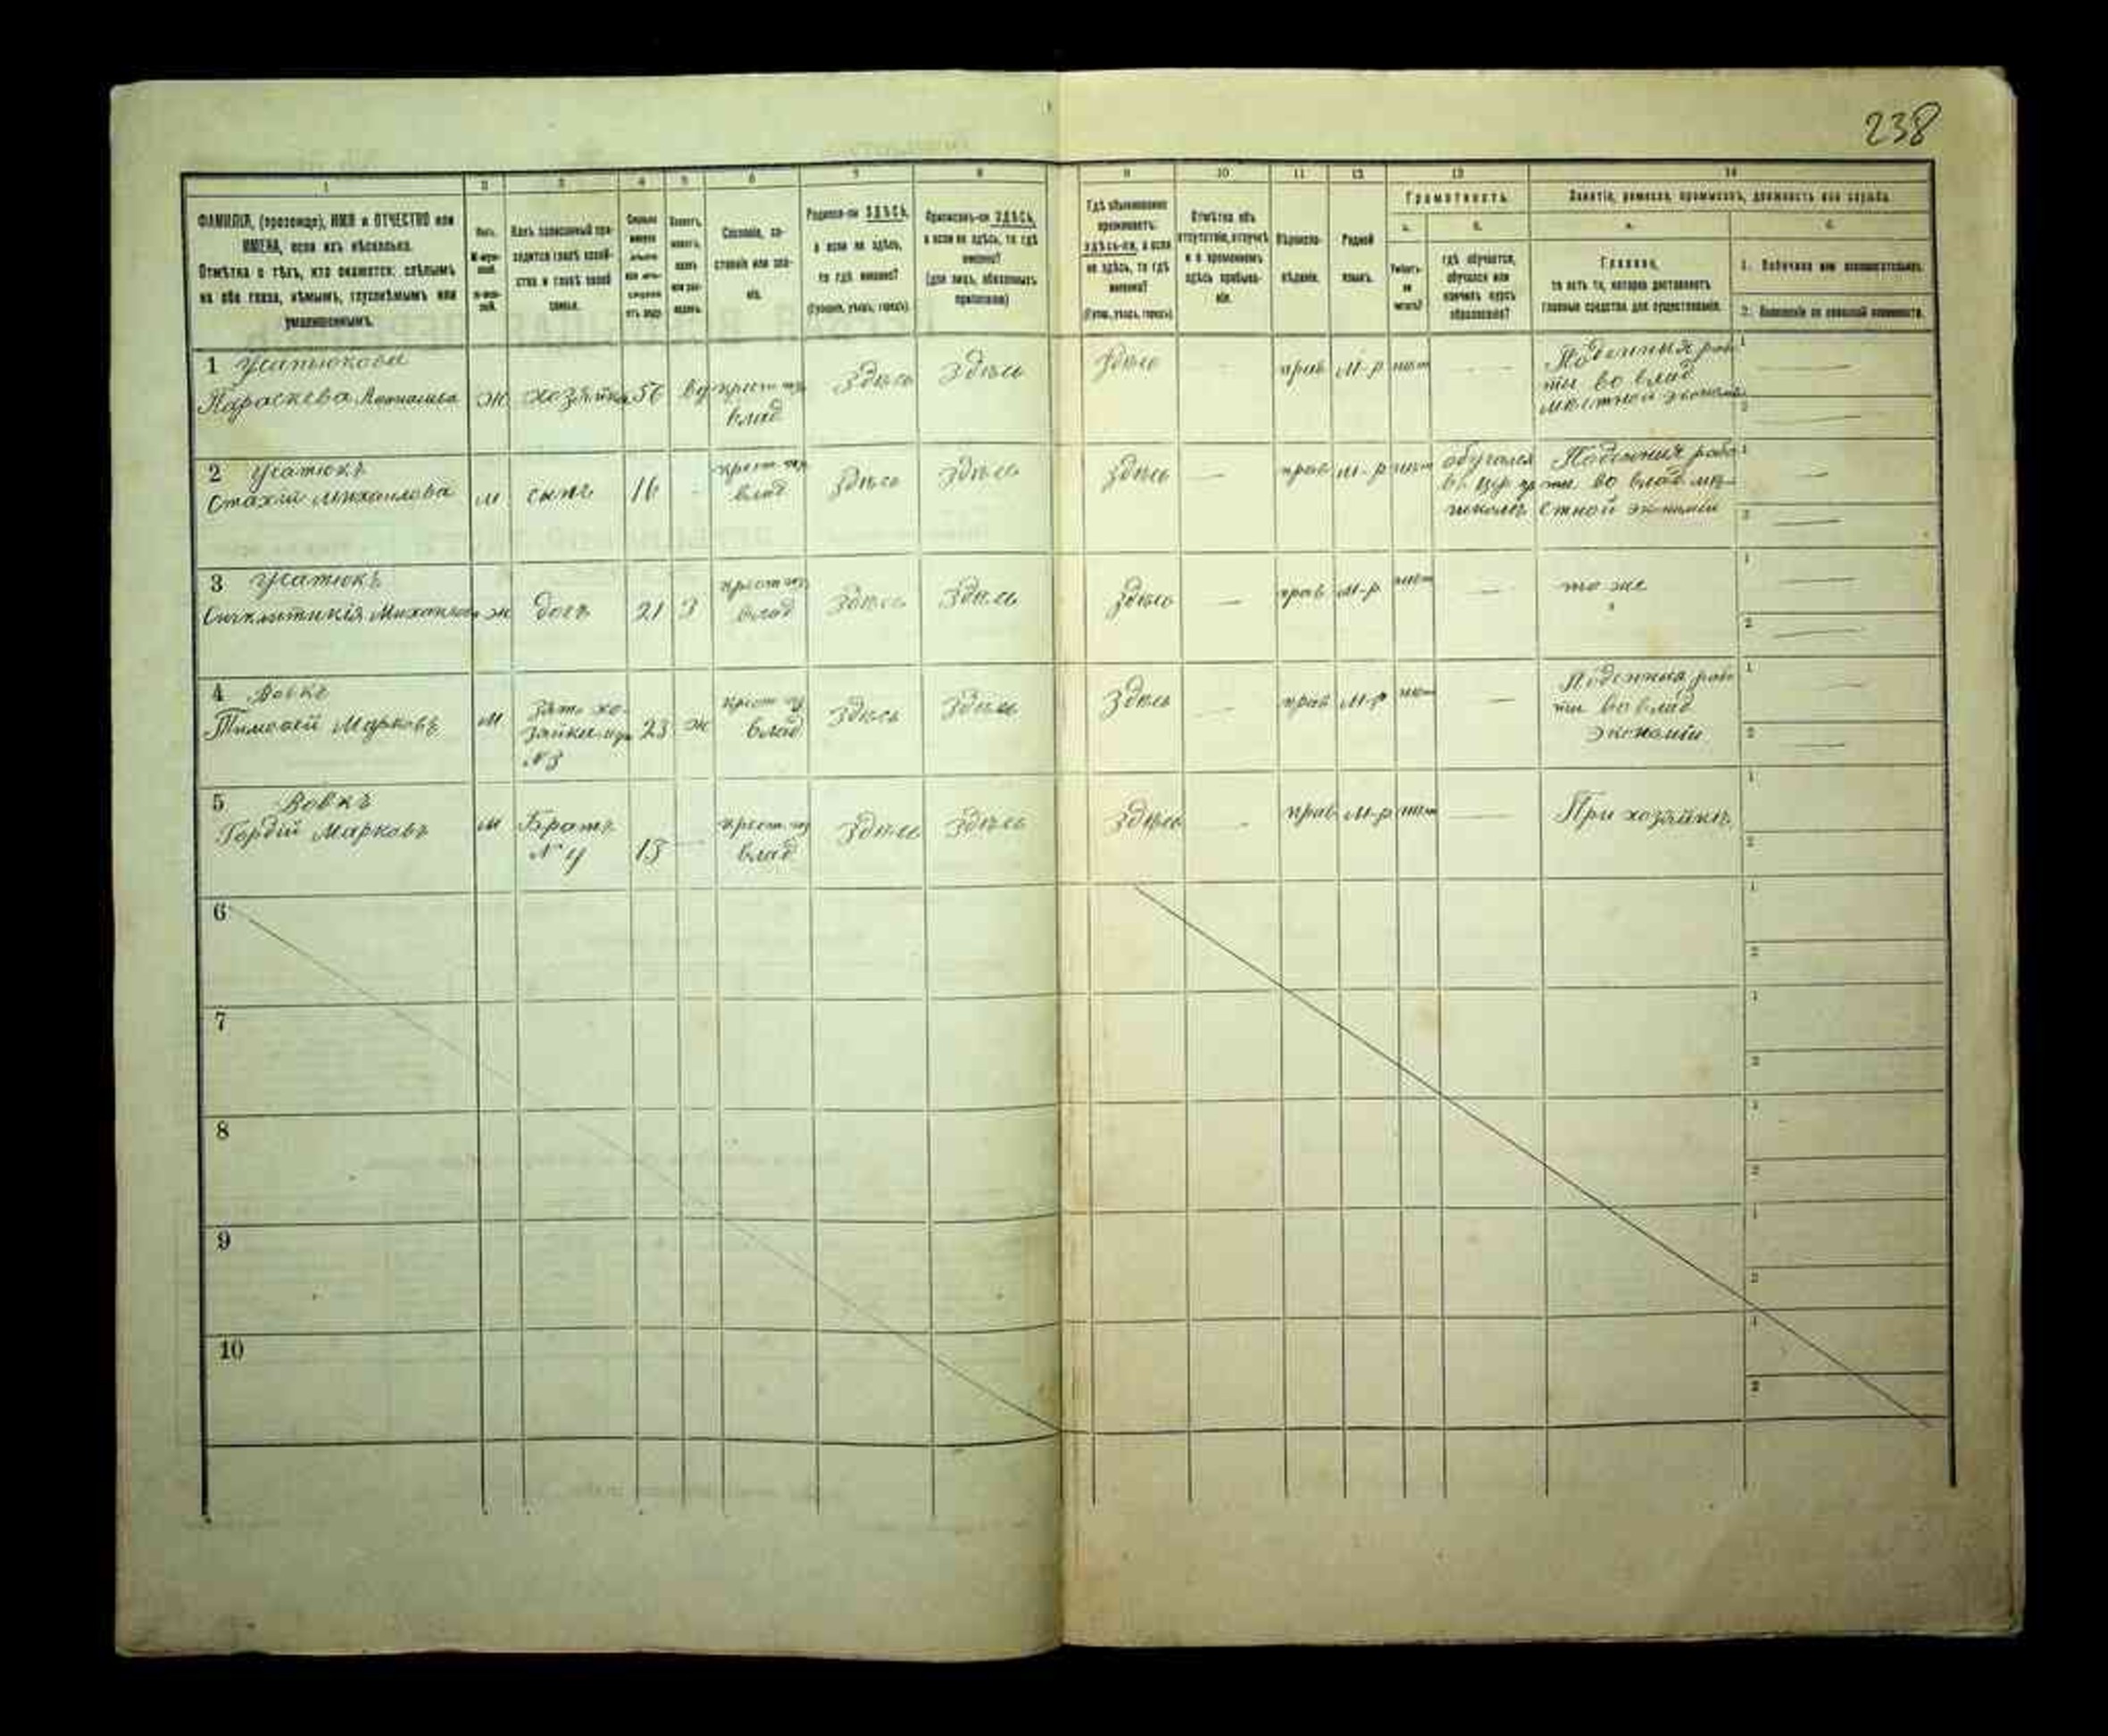 238
1 2 3 4 5 6 7 8 9 10 11 12 13 14
ФАМИЛІЯ, (прозвище), ИМЯ и ОТЧЕСТВО или
ИМЕНА, если ихъ нѣсколько.
Отмѣтка о тѣхъ, кто окажется: слѣпымъ
на оба глаза, нѣмымъ, глухонѣмымъ или
умалишеннымъ.
Полъ.
Родился-ли ЗДѢСЬ,
а если не здѣсь,
то гдѣ именно?
(Губернія, уѣздъ, городъ).
Приписанъ-ли ЗДѢСЬ,
а если не здѣсь, то гдѣ
именно?
(для лицъ, обязанныхъ
припискою)
Гдѣ обыкновенно
проживаетъ:
здѣсь-ли, а если
не здѣсь, то гдѣ
именно?
(Губер., уѣздъ, городъ).
Отмѣтка объ
отсутствіи, отлучкѣ
и о временномъ
здѣсь пребыва-
ніи.
Вѣроиспо-
вѣданіе.
Родной
языкъ.
Грамотность.
а. б.
Умѣетъ-
ли
читать?
гдѣ обучается,
обучался или
кончилъ курсъ
образованія?
Занятіе, ремесло, промыселъ, должность или служба.
а. б.
Главное,
то есть то, которое доставляетъ
главныя средства для существованія.
1. Побочное или вспомогательное.
2. Положеніе по воинской повинности.
1 Усатюкова
Параскева ж хозяйка 56 вд крест
влад здѣсь здѣсь здѣсь — прав м-р нѣт — Поденныя рабо
ты во влад
мѣстной экономіи
2 Усатюкъ
Стахій Михаилова м сынъ 16 - крест
влад здѣсь здѣсь здѣсь — прав м-р нѣт обучался
въ цр
школѣ Поденныя рабо
ты во влад мѣ-
стной экономіи
3 Усатюкъ
Синклитикія Михаилова ж дочь 21 З крест
влад здѣсь здѣсь здѣсь — прав м-р нѣт — то же
4 Вовкъ
Тимофей Марковъ м зять хо-
зяйки
№3 23 ж крест
влад здѣсь здѣсь здѣсь — прав м-р нѣт — Поденныя рабо
ты во влад
экономіи
5 Вовкъ
Гордій Марковъ м Братъ
№ 4 15 — крест
влад здѣсь здѣсь здѣсь — прав м-р нѣт — При хозяйкѣ
6
7
8
9
10